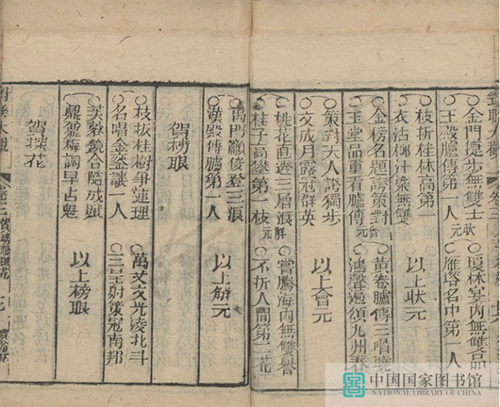 ○金門捷步無雙士狀 ○瓊林宴內無雙品
○玉殿臚傳第一人元 ○雁塔名中第一人
○枝折桂林高第一
○衣沾柳汁榮無雙 以上狀元
○金榜名題誇策對會 ○黃卷臚傳三唱曉
○玉堂品重看臚傳元 ○鴻聲過頌九州春
○策對天人誇獨步
○文成月露冠群英 以上會元
○桃花直透三層浪解 ○嘗騰海內無雙譽
○桂子高攀第一枝元 ○不折人間第二花
○禹門顯俊登三浪
○漢殿傳臚第一人 以上解元
賀榜眼
○枝拔桂樹爭連理 ○萬丈文光凌北斗
○名唱金鑾讓一人 ○三 射策冠南邦
○芙蓉鏡合隨成賦
○鼎鹽梅調早占魁 以上榜眼
賀探花
對聯大觀 卷二 賀榜眼探花
中国国家图书馆
NATIONAL LIBRARY OF CHINA